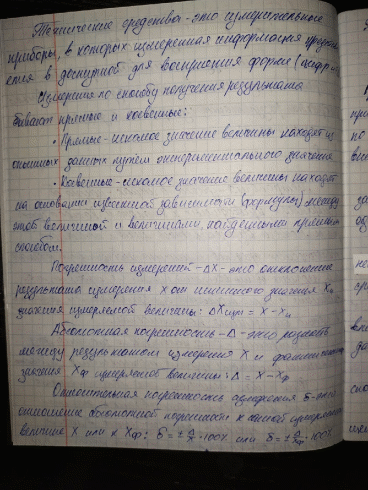 Технические средства - это измерительные
приборы, в которых измеренная информация представ
ется в доступной для восприятия форме (
Измерения по способу получения результата
бывают прямые и косвенные:
• Прямые - искомое значение величины находят из
опытных данных путём экспериментального значения
• Косвенные - искомое значение величины находят
на основании известной зависимости (формулы) между
этой величиной и величинами, найденными прямым
способом.
Погрешность измерений - ΔX - это отклонение
результата измерения X от истинного значения Xи
значения измеряемой величины: ΔXизм = X - Xи
Абсолютная погрешность - Δ - это разность
между результатом измерения X и фактическим
значения Xф измеряемой величины: Δ = X - Xф
Относительная погрешность измерения δ - это
отношение абсолютной погрешности к самой измеряемой
величине X или к Xф: δ = ± Δ/X · 100% или δ = ± Δ/Xф · 100%